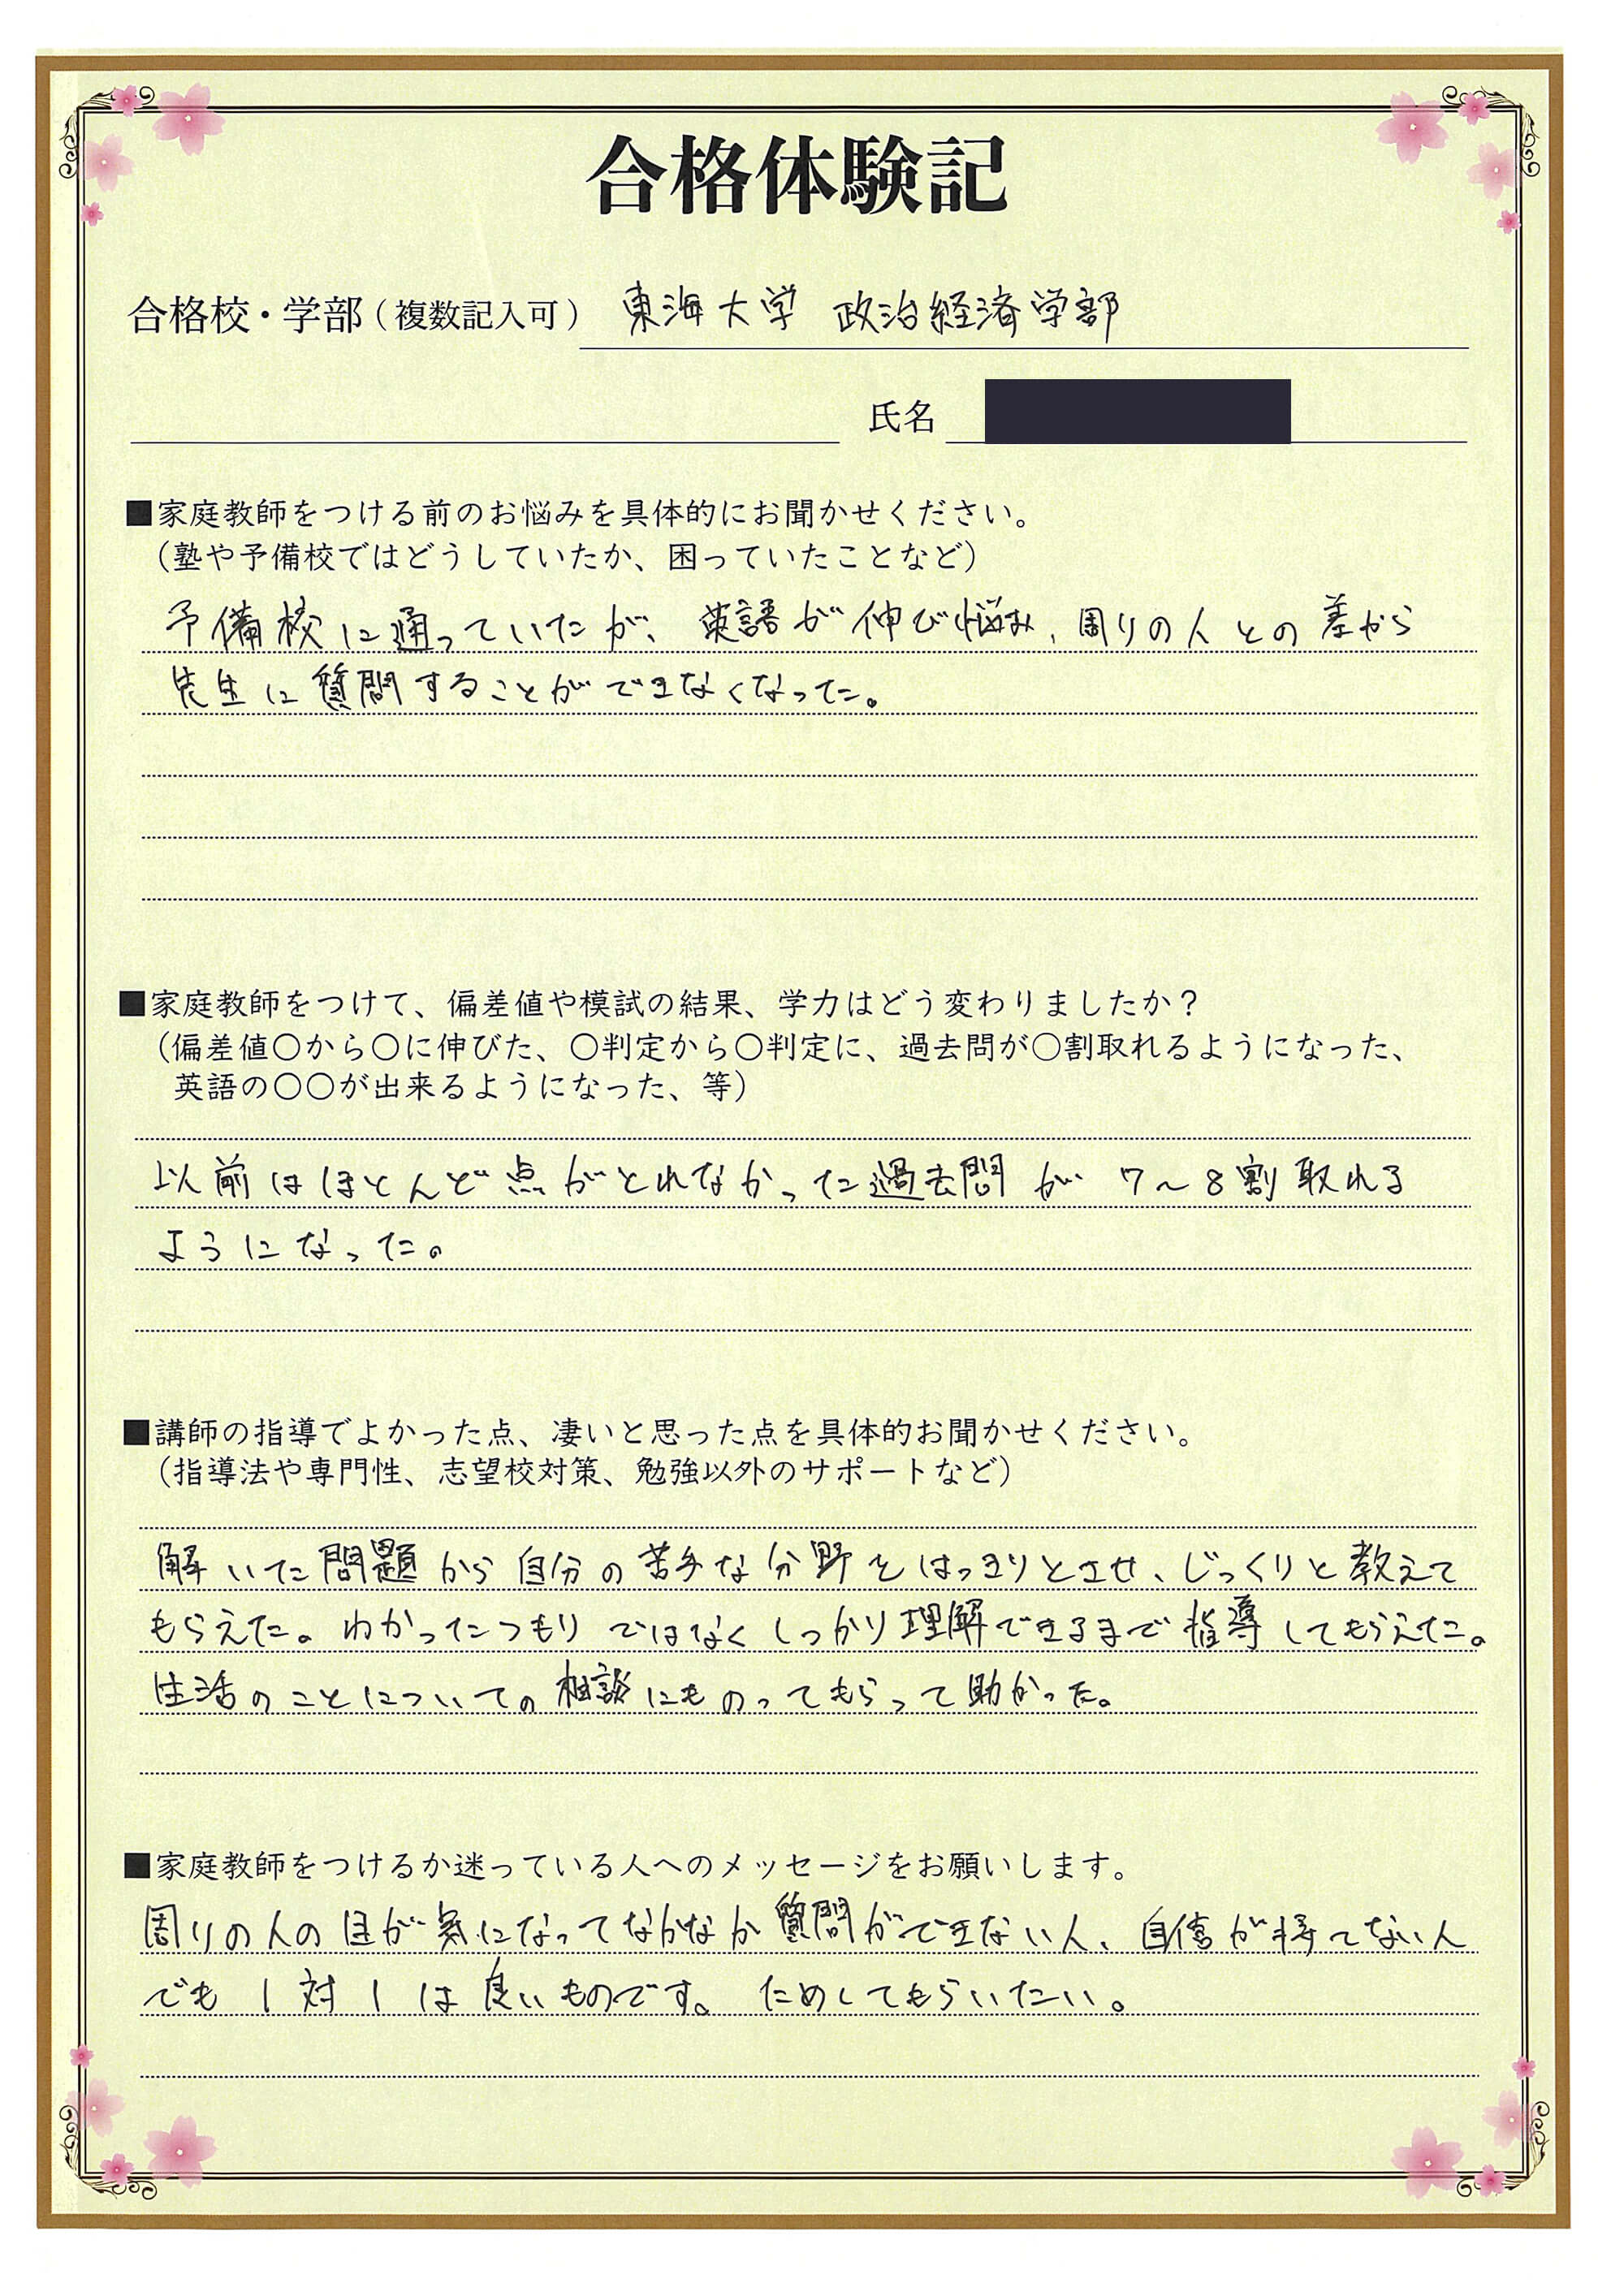 合格体験記
合格校・学部（複数記入可） 東海大学 政治経済学部
氏名
■家庭教師をつける前のお悩みを具体的にお聞かせください。
（塾や予備校ではどうしていたか、困っていたことなど）
予備校に通っていたが、英語が伸び悩み、周りの人との差から
先生に質問することができなくなった。
■家庭教師をつけて、偏差値や模試の結果、学力はどう変わりましたか？
（偏差値〇から〇に伸びた、〇判定から〇判定に、過去問が〇割取れるようになった、
英語の〇〇が出来るようになった、等）
以前はほとんど点がとれなかった過去問が 7～8割取れる
ようになった。
■講師の指導でよかった点、凄いと思った点を具体的お聞かせください。
（指導法や専門性、志望校対策、勉強以外のサポートなど）
解いた問題から自分の苦手な分野をはっきりとさせ、じっくりと教えて
もらえた。わかったつもりではなくしっかり理解できるまで指導してもらえた。
生活のことについての相談にものってもらって助かった。
■家庭教師をつけるか迷っている人へのメッセージをお願いします。
周りの人の目が気になってなかなか質問ができない人、自信が持てない人
でも1対1は良いものです。ためしてもらいたい。